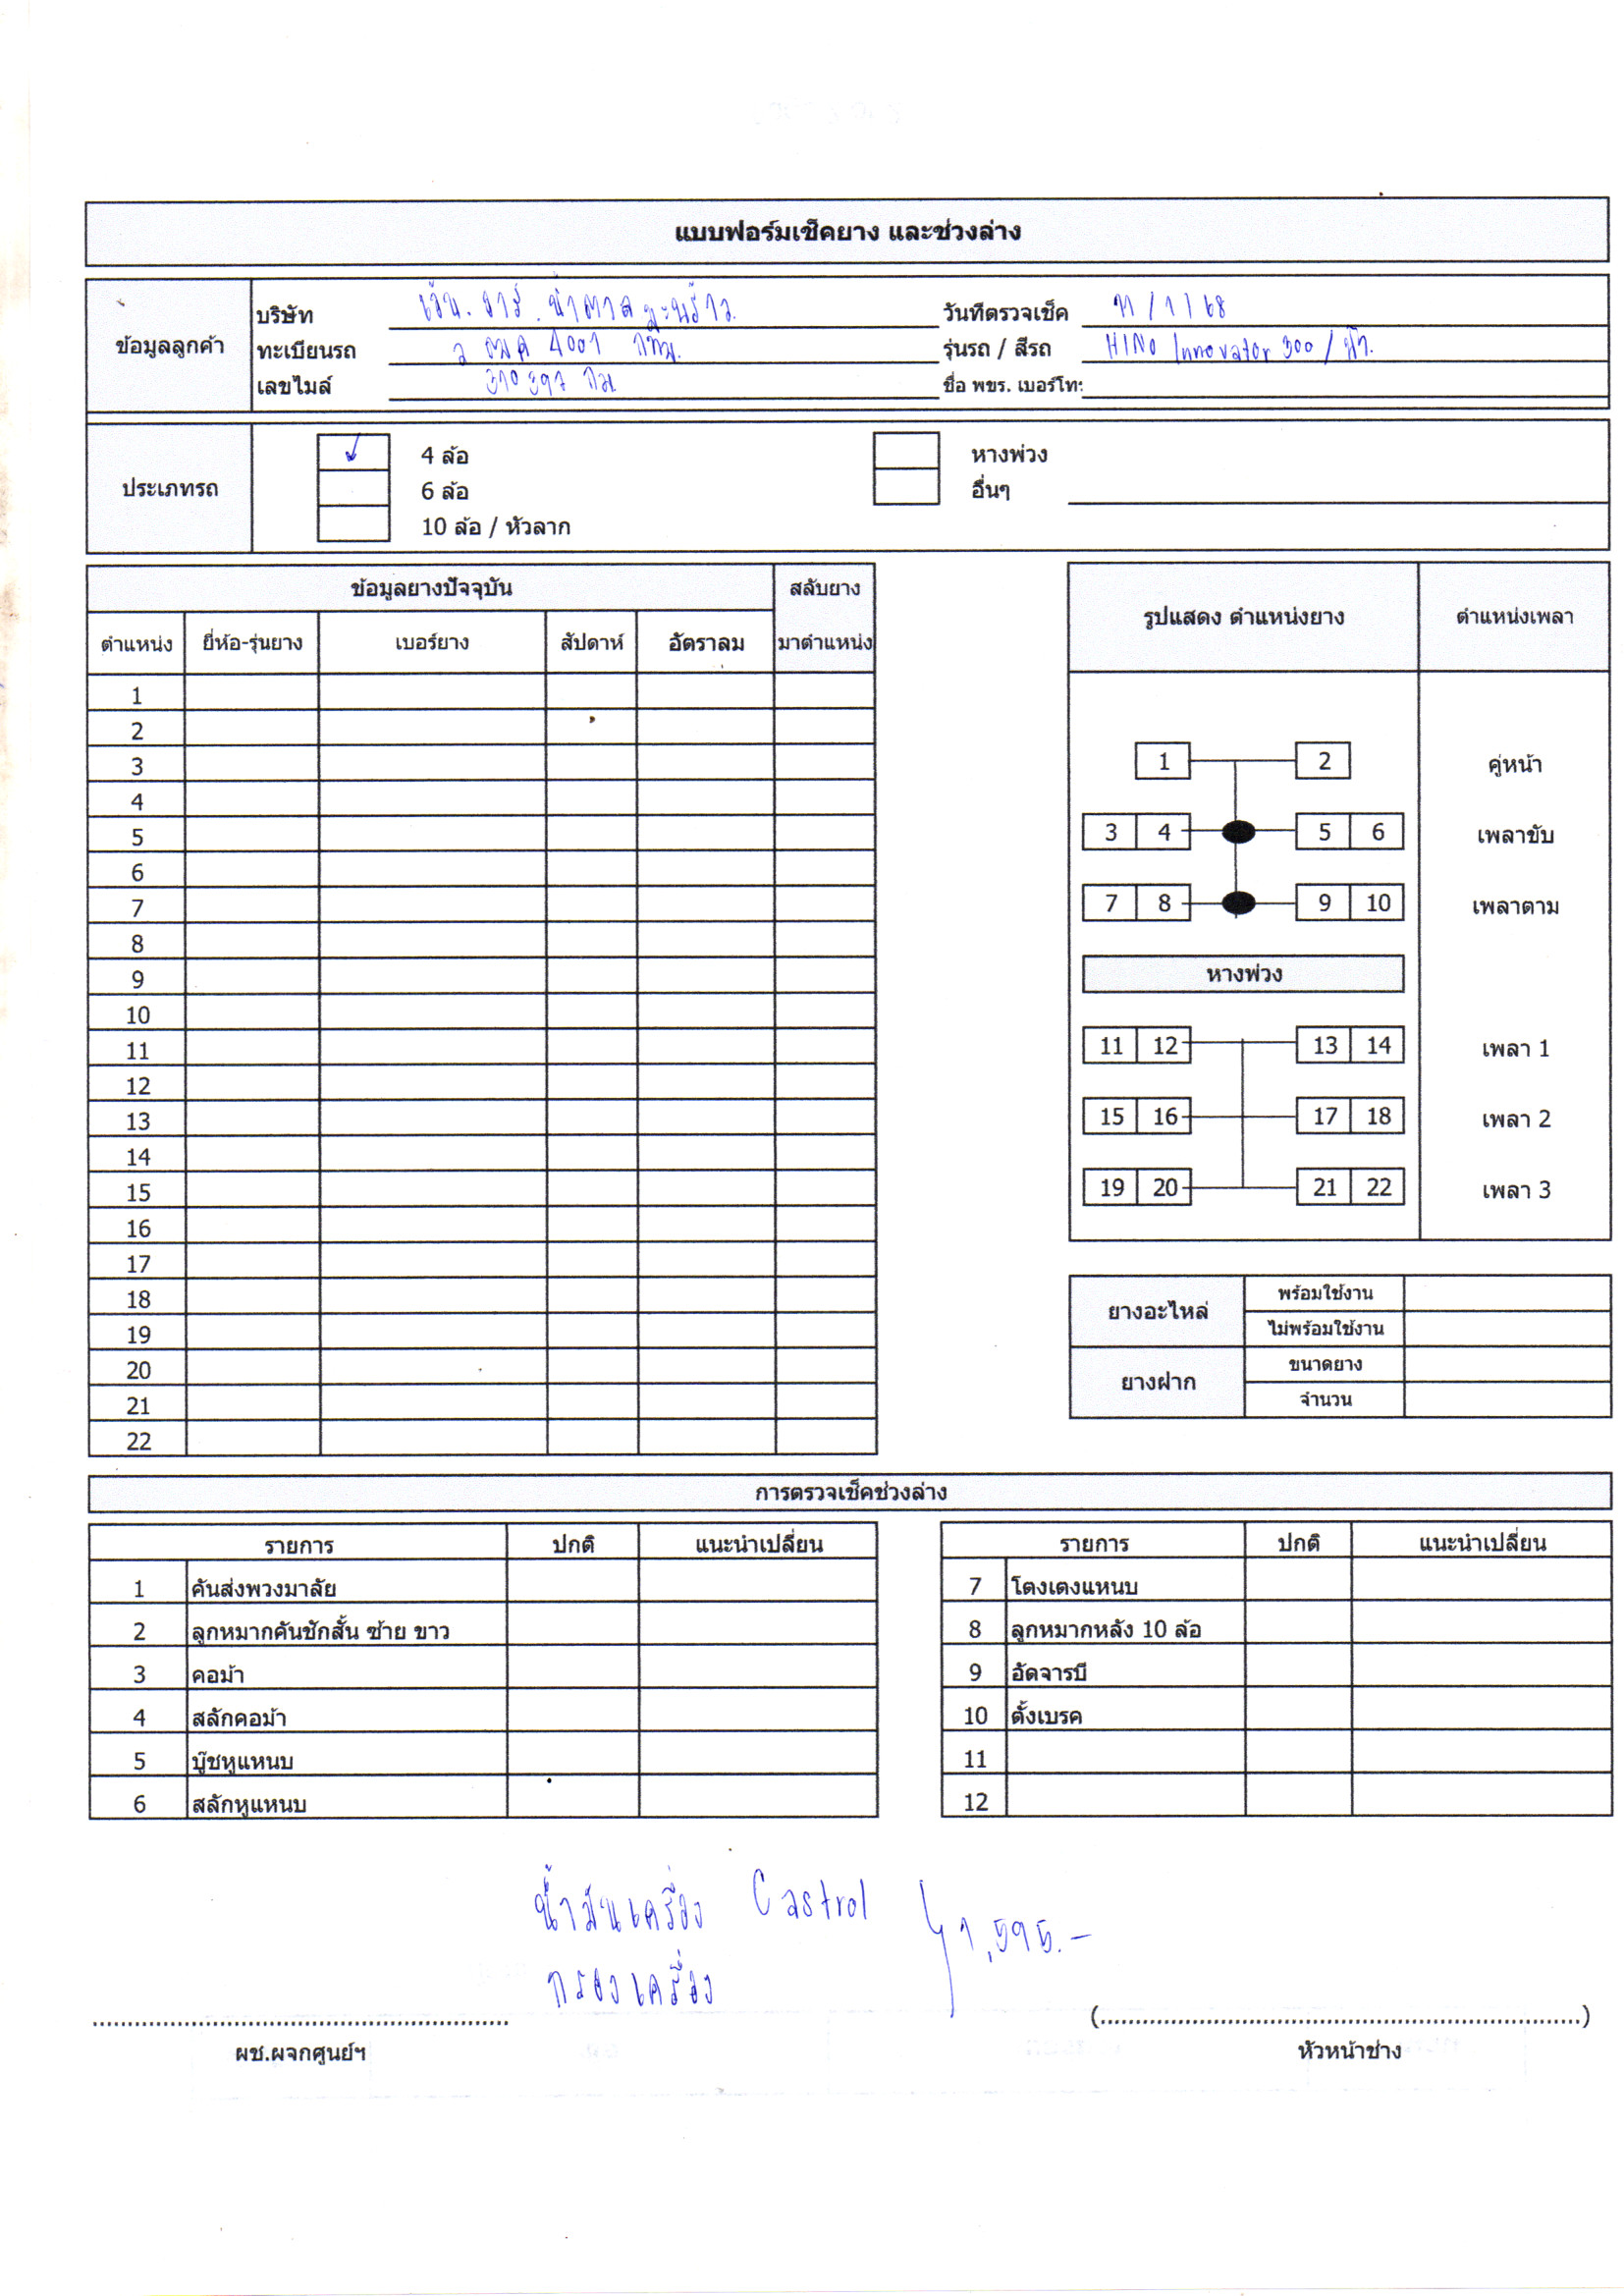 แบบฟอร์มเช็คยาง และช่วงล่าง
ข้อมูลลูกค้า
บริษัท เอ็น.อาร์.น้ำตาลมะพร้าว
วันที่ตรวจเช็ค 11/1/68
ทะเบียนรถ 4001 กทม.
รุ่นรถ / สีรถ HINO Innovator 300 /
เลขไมล์ 310397 กม.
ชื่อ พขร. เบอร์โทร
ประเภทรถ
4 ล้อ
6 ล้อ
10 ล้อ / หัวลาก
หางพ่วง
อื่นๆ
ข้อมูลยางปัจจุบัน สลับยาง
ตำแหน่ง ยี่ห้อ-รุ่นยาง เบอร์ยาง สัปดาห์ อัตราลม มาตำแหน่ง
1
2
3
4
5
6
7
8
9
10
11
12
13
14
15
16
17
18
19
20
21
22
รูปแสดง ตำแหน่งยาง ตำแหน่งเพลา
1 2 คู่หน้า
3 4 5 6 เพลาขับ
7 8 9 10 เพลาตาม
หางพ่วง
11 12 13 14 เพลา 1
15 16 17 18 เพลา 2
19 20 21 22 เพลา 3
ยางอะไหล่ พร้อมใช้งาน
ไม่พร้อมใช้งาน
ยางฝาก ขนาดยาง
จำนวน
การตรวจเช็คช่วงล่าง
รายการ ปกติ แนะนำเปลี่ยน
1 คันส่งพวงมาลัย
2 ลูกหมากคันชักสั้น ซ้าย ขาว
3 คอม้า
4 สลักคอม้า
5 บู๊ชหูแหนบ
6 สลักหูแหนบ
รายการ ปกติ แนะนำเปลี่ยน
7 โตงเตงแหนบ
8 ลูกหมากหลัง 10 ล้อ
9 อัดจารบี
10 ตั้งเบรค
11
12
น้ำมันเครื่อง Castrol
กรองเครื่อง
1,595.-
ผช.ผจกศูนย์ฯ
(....................)
หัวหน้าช่าง